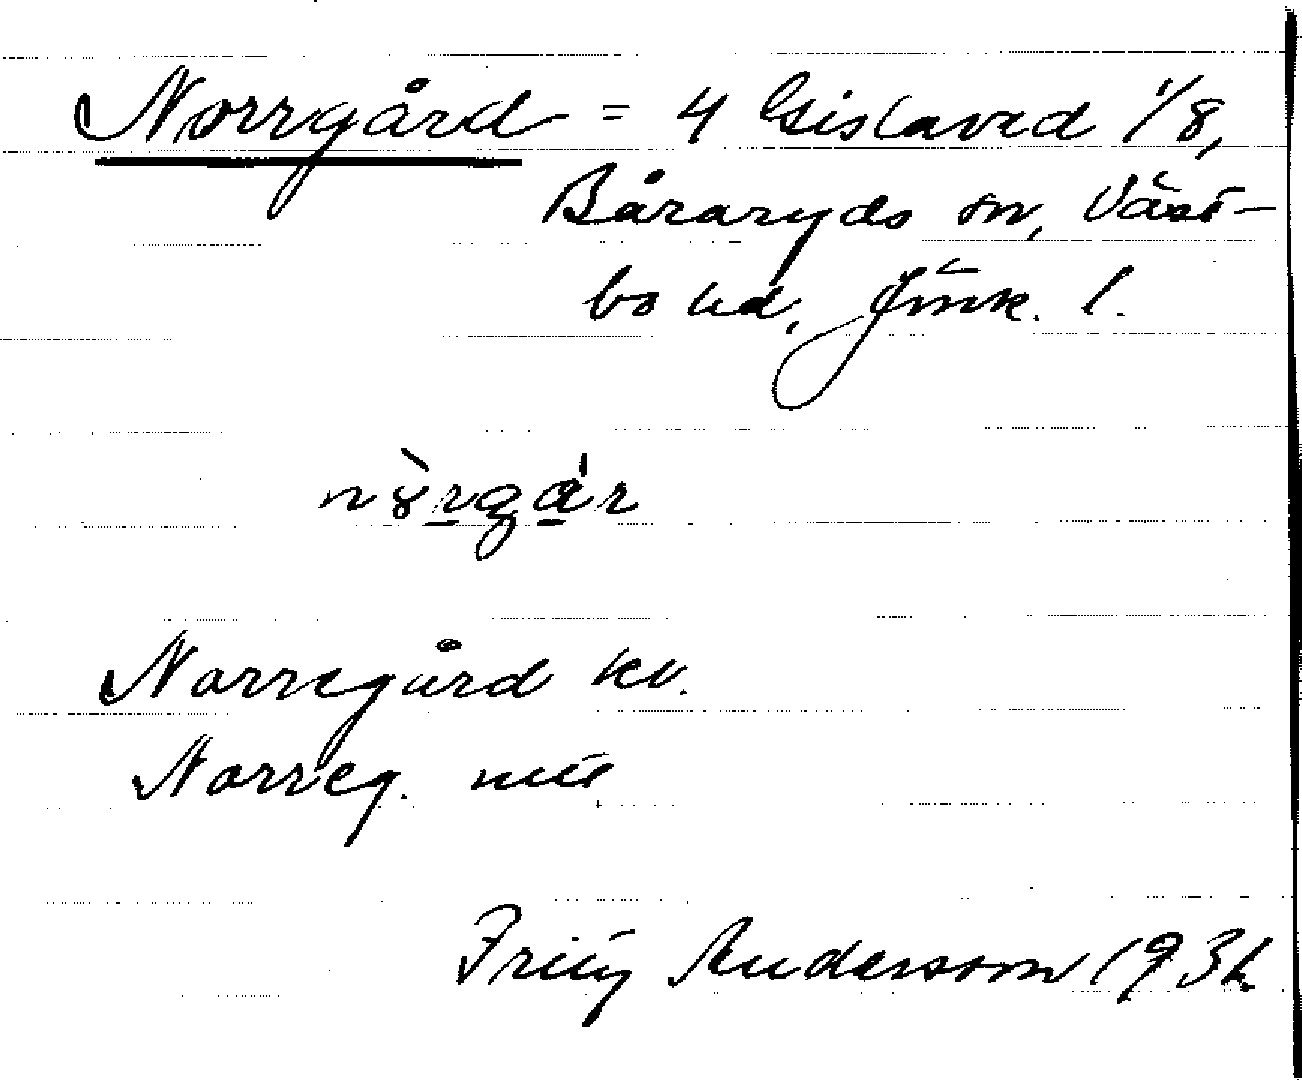 Norrgård = 4 Gislaved 1/8,
Båraryds sn, Väst-
bo hd, Jönk. l.
Norregård kv.
Norreg.
Fritiof Anderson 1934